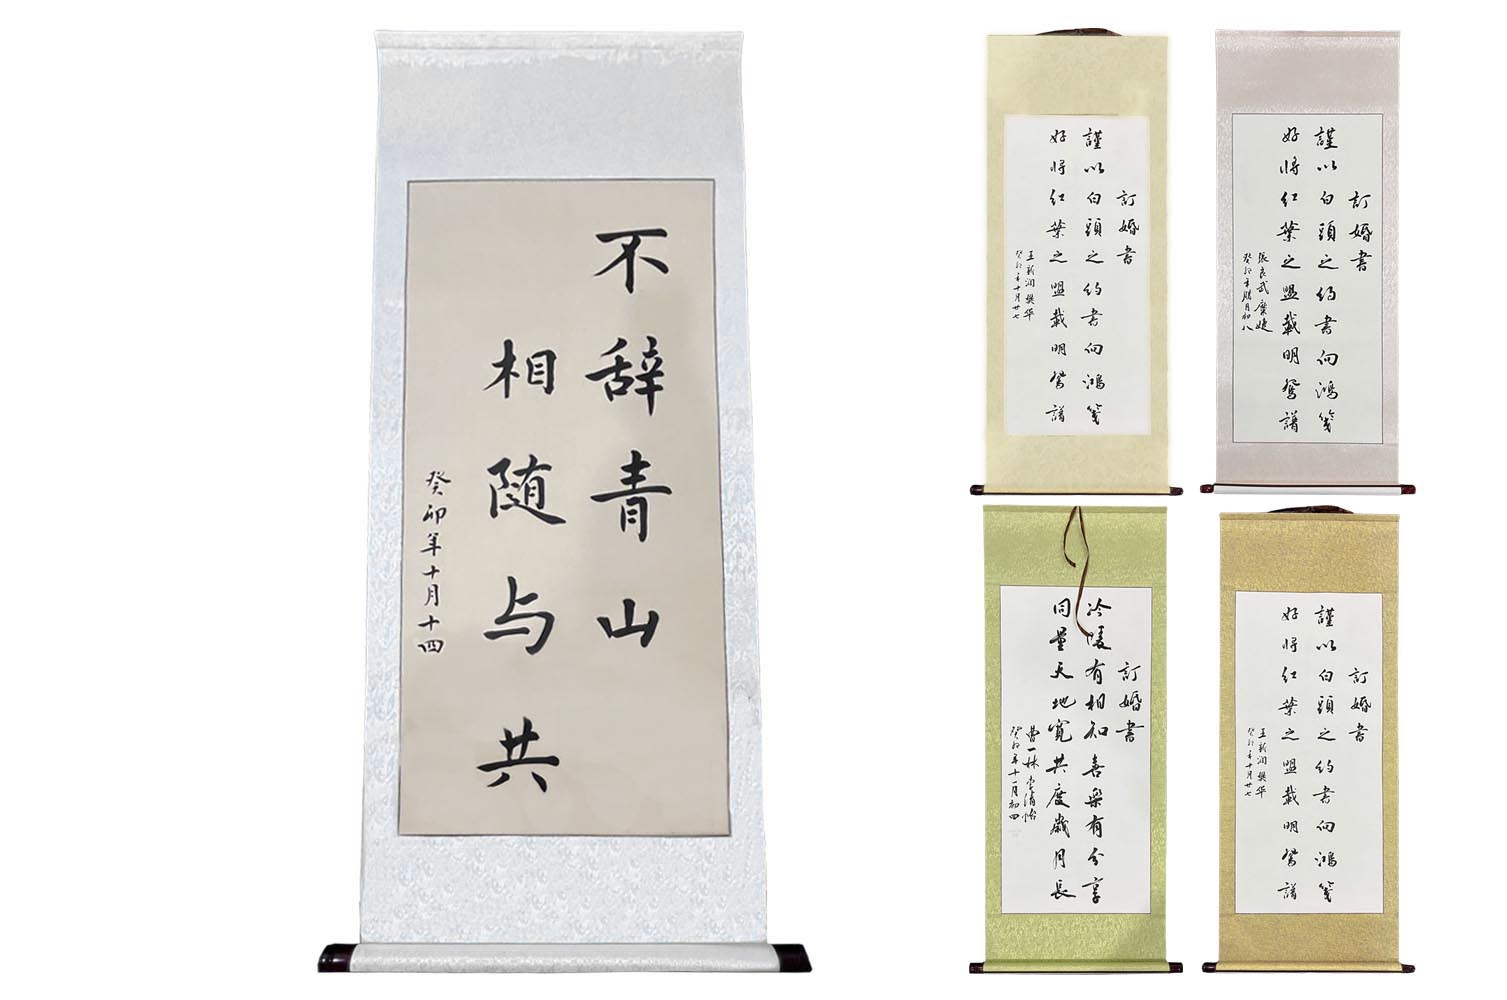 不辞青山
相随与共
癸卯年十月十四
訂婚書
謹以白頭之約書向鴻箋
好將紅葉之盟載明鴛譜
王新润樊华
癸卯年十月廿七
訂婚書
謹以白頭之約書向鴻箋
好將紅葉之盟載明鴛譜
癸卯年腊月初八
訂婚書
冷暖有相知喜樂有分享
同量天地寬共度歲月長
癸卯年十一月初四
訂婚書
謹以白頭之約書向鴻箋
好將紅葉之盟載明鴛譜
王新润樊华
癸卯年十月廿七